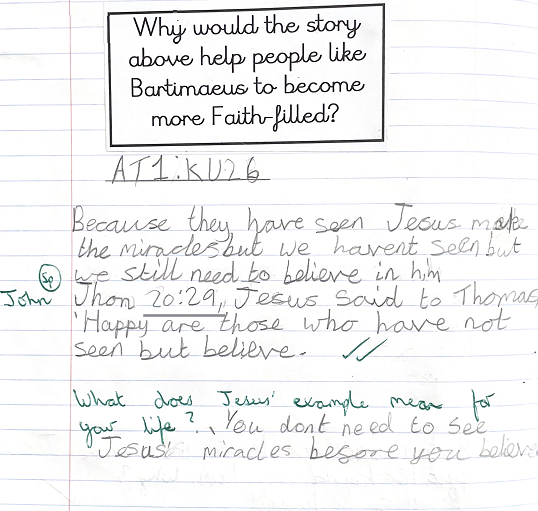 Why would the story
above help people like
Bartimaeus to become
more Faith-filled?
AT1:KU26
Because they have seen Jesus make
the miracles but we havent seen but
we still need to believe in him
Sp
John
Jhon 20:29, Jesus said to Thomas
'Happy are those who have not
seen but believe.
What does Jesus' example mean for
your life? You dont need to see
Jesus' miracles before you believe